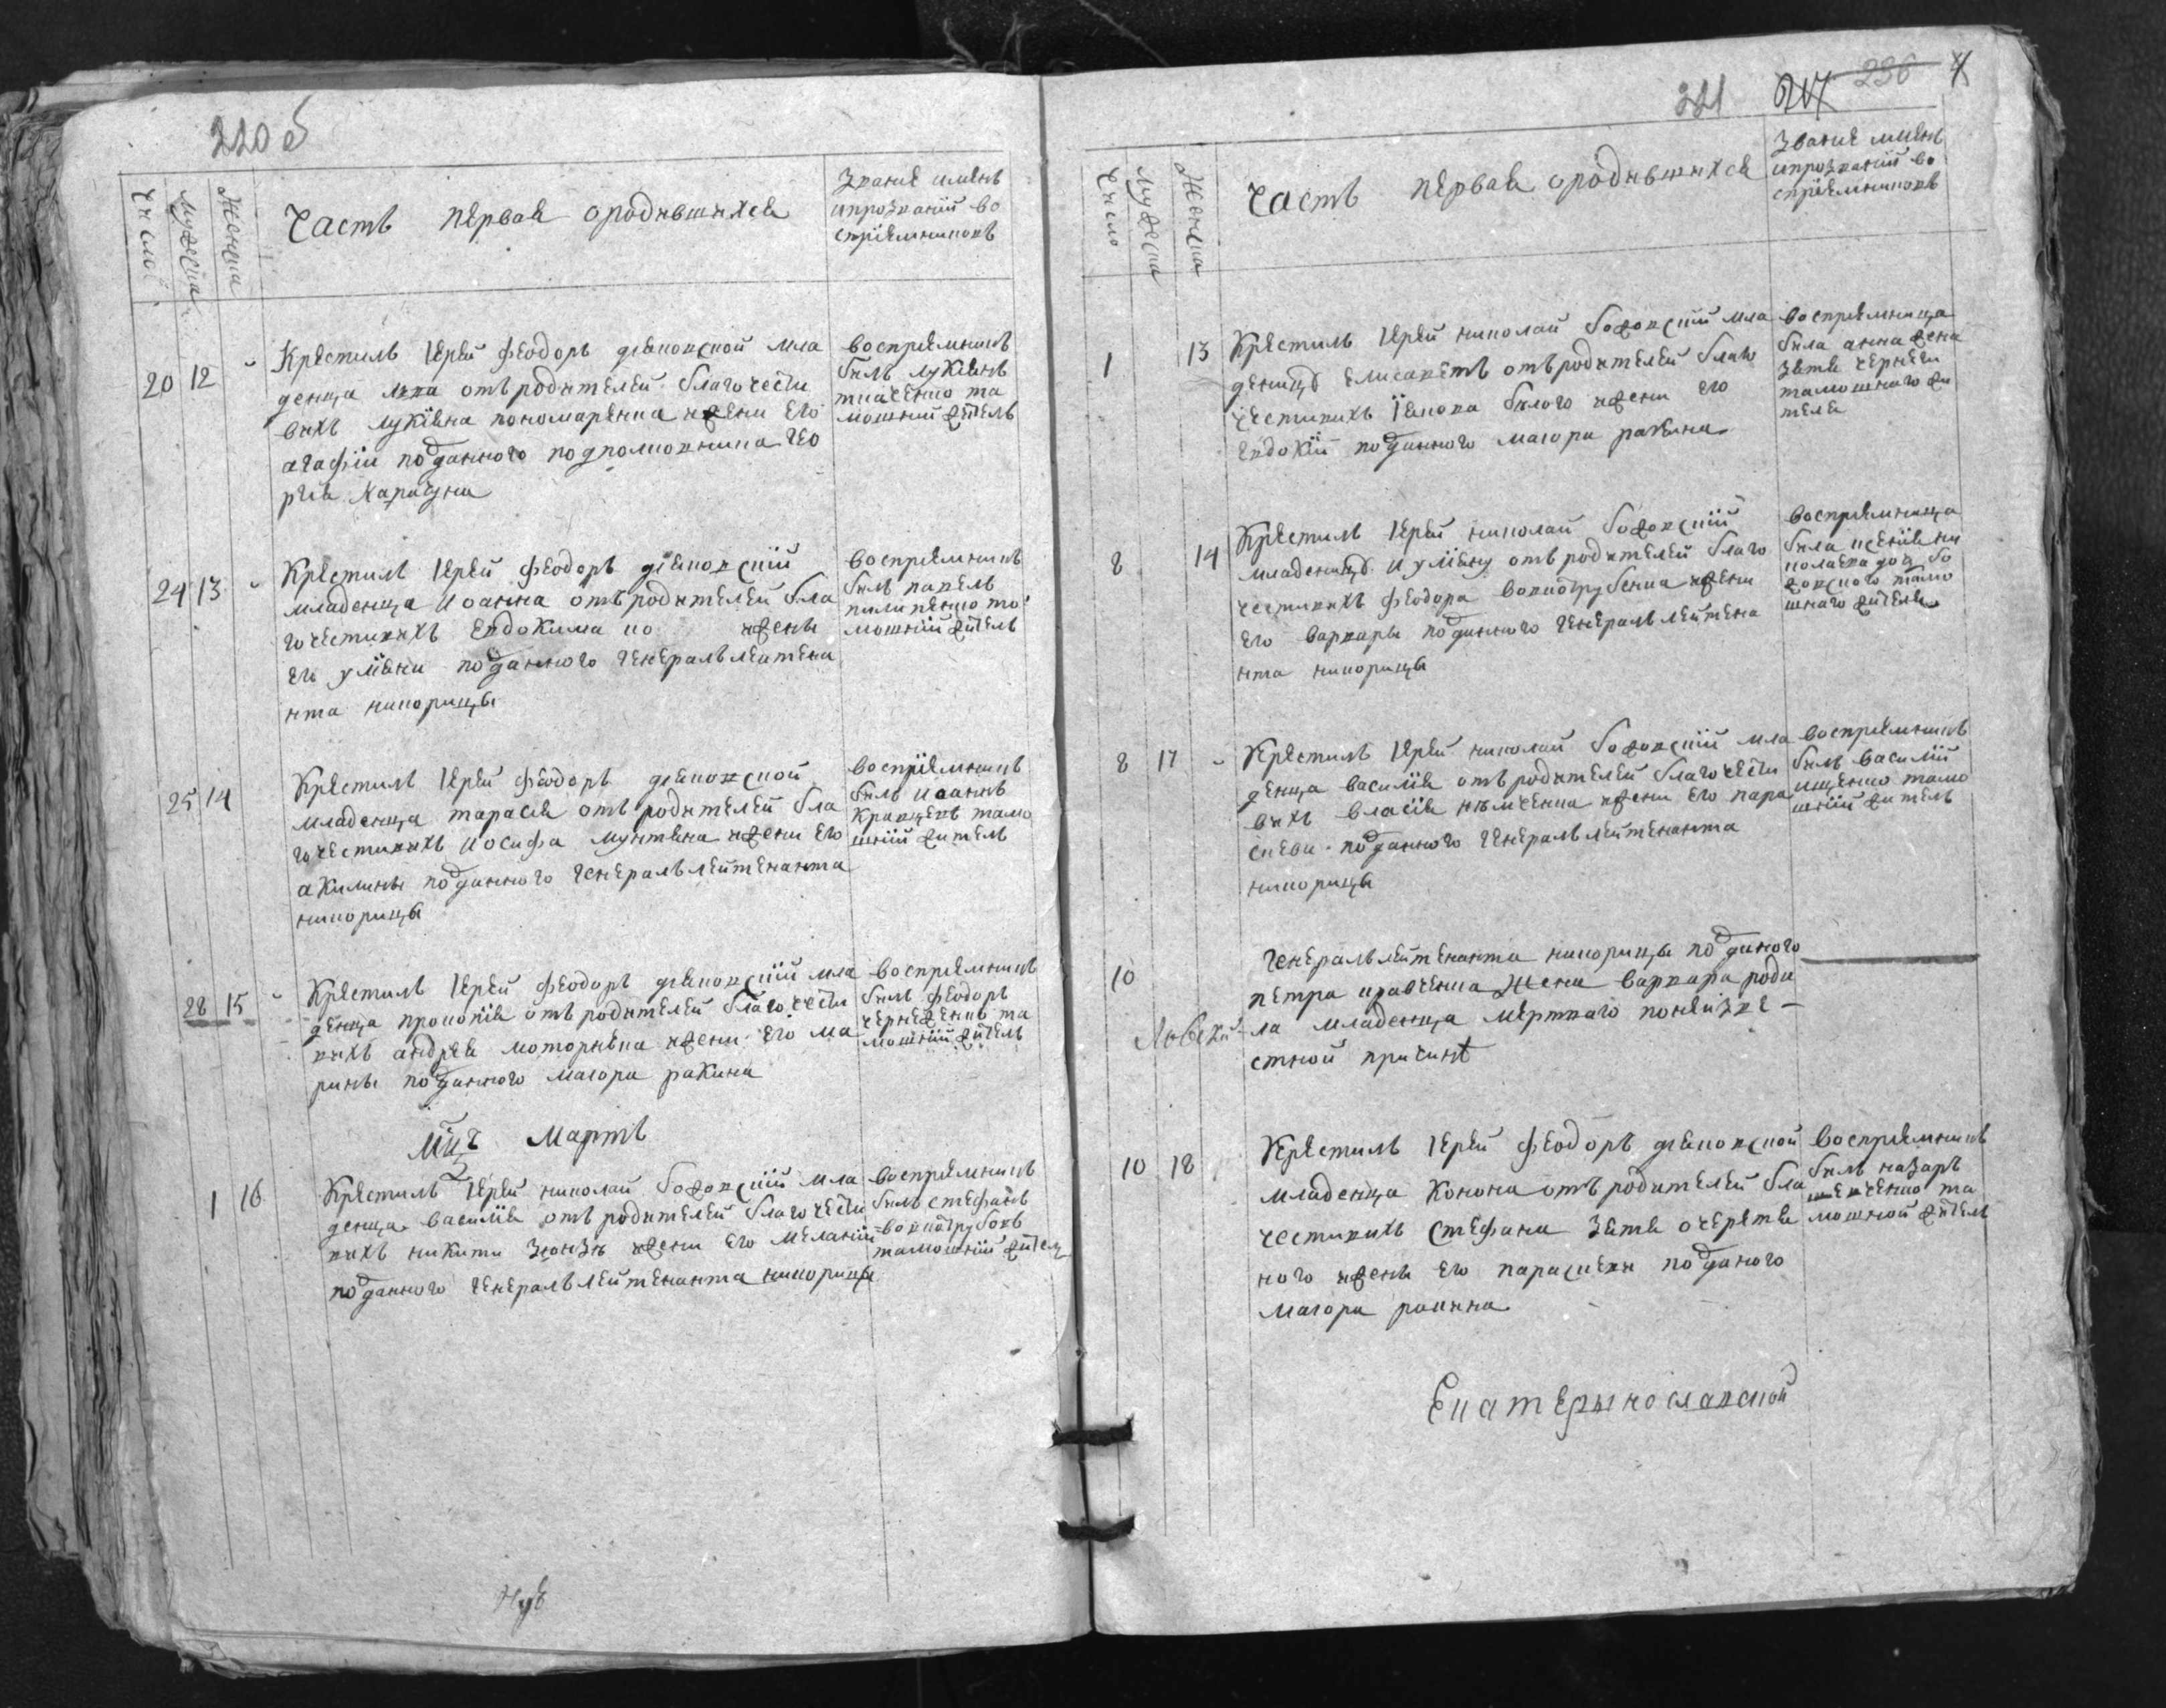 220 б
Число
Мужеска
Женска
Часть первая ородившихся
Звание именъ
ипрозваній во
спріемниковъ
20 12
Крестилъ Іерей Феодоръ дьяковской мла
денца отъ родителей благочести
выхъ лукіяна пономаренка ижени его
агафіи подданного подполковника гео
ргія
воспріемникъ
билъ лукіянъ
ткаченко та
мошній житель
24 13
Крестилъ Іерей Феодоръ дьяковскій
младенца иоанна отъ родителей бла
гочестивихъ Евдокима ко ижени
его уліяни подданного генералълейтена
нта никорици
воспріемникъ
билъ павелъ
пилипенко та
мошній житель
25 14
Крестилъ Іерей Феодоръ дьяковской
младенца тарасія отъ родителей бла
гочестивихъ иосифа мунтяна ижени его
акилини подданного генералълейтенанта
никорици
воспріемникъ
билъ иоаннъ
кравцевъ тамо
шній житель
28 15
Крестилъ Іерей Феодоръ дьяковскій мла
денца прокопія отъ родителей благочести
вихъ андрея моторнина ижени его ма
рини подданного маіора ракина
воспріемникъ
билъ Феодоръ
та
мошній житель
Мцъ Мартъ
1 16
Крестилъ Іерей николай божовскій мла
денца василія отъ родителей благочести
вихъ никити ижени его меланіи
подданного генералълейтенанта никорици
воспріемникъ
билъ стефанъ
вовкотрубовъ
тамошній жител
221 217 236 4
Число
Мужеска
Женска
Часть первая ородившихся
Звание именъ
ипрозваній во
спріемниковъ
1 13
Крестилъ Іерей николай божовскій мла
деницу елисаветъ отъ родителей благо
честивихъ іякова билого ижени его
евдокіи подданного маіора ракина
воспріемница
била анна жена
зятя
тамошнаго жи
теля
8 14
Крестилъ Іерей николай божовскій
младеницу иуліяну отъ родителей благо
честивихъ феодора вовкотрубенка ижени
его варвари подданного генералълейтена
нта никорици
воспріемница
била ксенія ни
колаева дочь бо
жовского тамо
шнаго жителя
8 17
Крестилъ Іерей николай божовскій мла
денца василія отъ родителей благочести
вихъ власія нѣмченка ижени его пара
скеви подданного генералълейтенанта
никорици
воспріемникъ
билъ василій
ищенко тамо
шній житель
10
генералълейтенанта никорици подданого
петра кравченка жена варвара роди
ла младенца мертваго поневизве
стной причинѣ
10 18
Крестилъ Іерей Феодоръ дьяковской
младенца конона отъ родителей бла
честивихъ стефана зятя очеретя
ного жени его параскеви подданого
маіора ракина
воспріемникъ
билъ назаръ
шевченко та
мошной житель
Екатериносла​вской